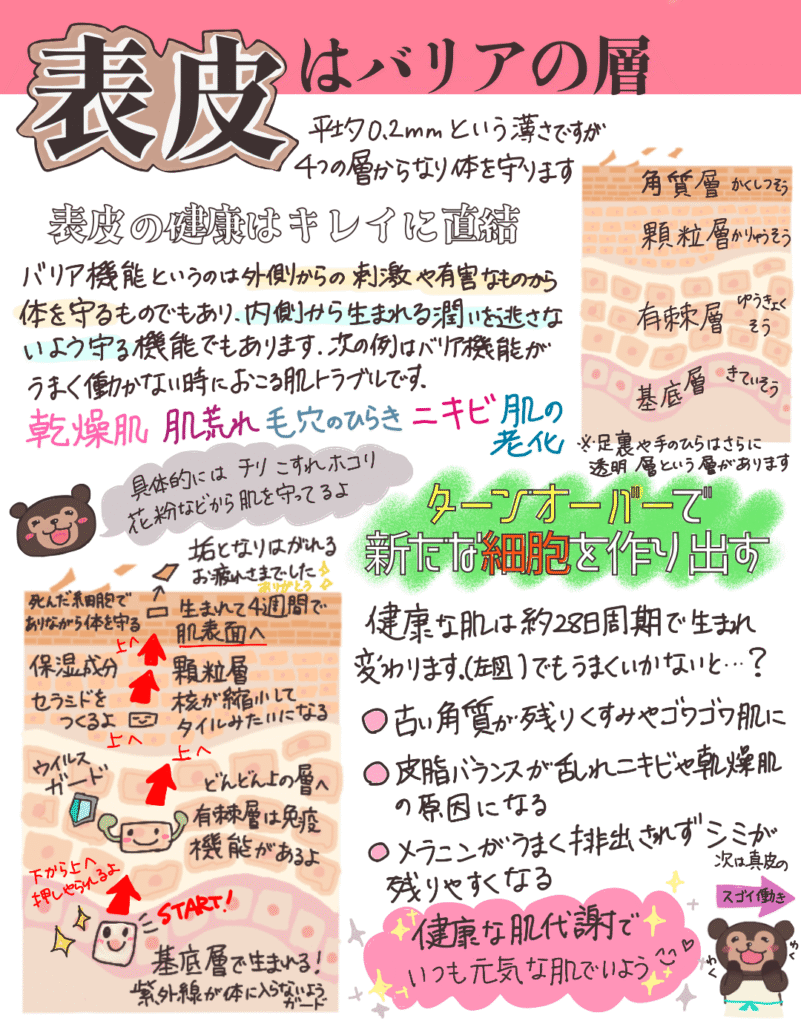 表皮はバリアの層
平均0.2mmという薄さですが
4つの層からなり体を守ります
角質層 かくしつそう
顆粒層 かりゅうそう
有棘層 ゆうきょく
そう
基底層 きていそう
※足裏や手のひらはさらに
透明層という層があります
表皮の健康はキレイに直結
バリア機能というのは外側からの刺激や有害なものから
体を守るものでもあり、内側から生まれる潤いを逃さな
いよう守る機能でもあります。次の例はバリア機能が
うまく働かない時におこる肌トラブルです。
乾燥肌 肌荒れ 毛穴のひらき ニキビ 肌の
老化
具体的には チリ こすれ ホコリ
花粉などから肌を守ってるよ
垢となりはがれる
お疲れさまでした
ありがとう
死んだ細胞で
ありながら体を守る
生まれて4週間で
肌表面へ
上へ
保湿成分
セラミドを
つくるよ
顆粒層
核が縮小して
タイルみたいになる
上へ
上へ
ウイルス
ガード
どんどん上の層へ
有棘層は免疫
機能があるよ
下から上へ
押しやられるよ
START!
基底層で生まれる!
紫外線が体に入らないよう
ガード
ターンオーバーで
新たな細胞を作り出す
健康な肌は約28日周期で生まれ
変わります。(左図)でもうまくいかないと…?
古い角質が残りくすみやゴワゴワ肌に
皮脂バランスが乱れニキビや乾燥肌
の原因になる
メラニンがうまく排出されずシミが
残りやすくなる
健康な肌代謝で
いつも元気な肌でいよう
次は真皮の
スゴイ働き
わく
わく